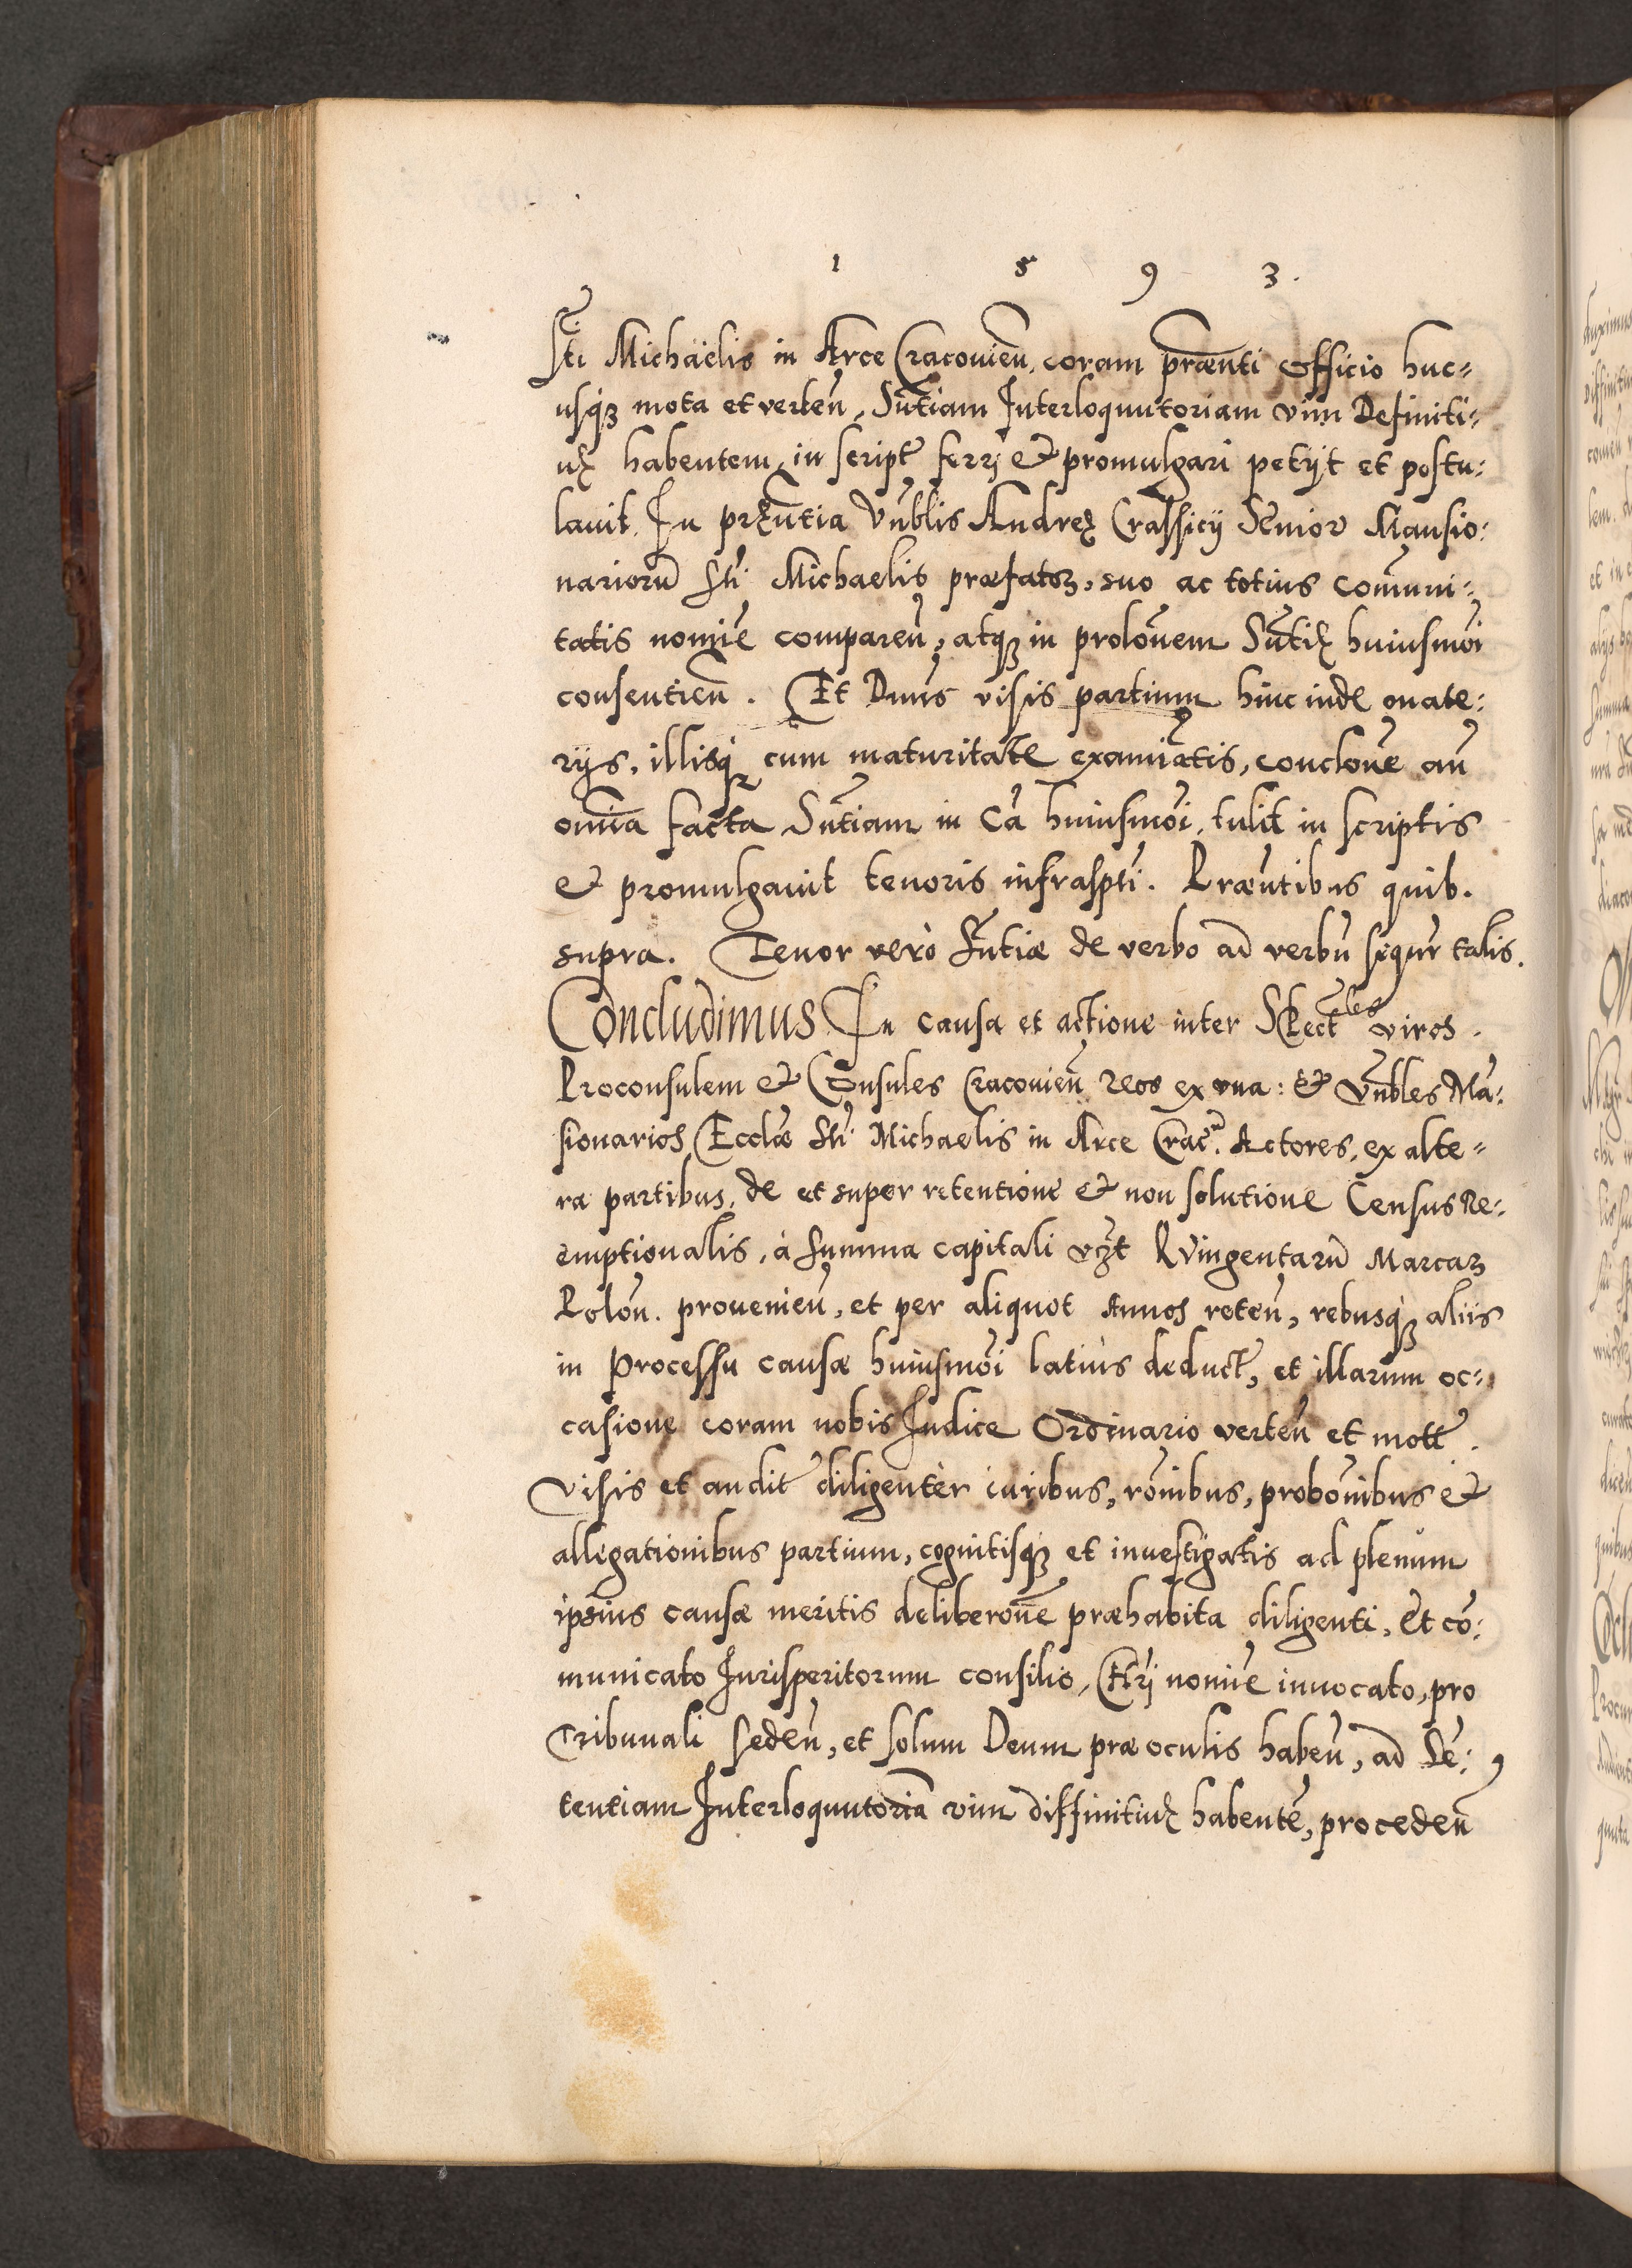 1 5 9 3.
Sti Michaelis in Arce Cracovien̄. coram præn̄ti Officio huc=
usq̃ȝ mota et verten̄, Sn̄tiam Interloquutoriam vim Definiti=
uę habentem, in script̃ ferrj & promulgari petijt et postu=
lauit. In pręn̄tia Vn̄blis Andreę Crassicij Senior Mansio=
nariorū Sti Michaelis præfatoȝ, suo ac totius com̄uni=
tatis nomīe comparen̄, atqȝ in prolōnem Sn̄tię huiusmōi
consentien̄. Et Dnus visis partium hinc inde mate=
rijs, illisq̃ȝ cum maturitate examiātis, conclōne an̄
omn̄a facta Sn̄tiam in cā huiusmōi, tulit in scriptis
& promulgauit tenoris infrasptī. Præn̄tibus quib.
supra. Tenor verò Sn̄tiæ de verbo ad verbū sequr̄ talis.
Concludimus In causa et actione inter SPect̃les viros
Proconsulem & Consules Cracovien̄ reos ex vna: & Vn̄bles Mā=
sionarios Ecclæ Sti Michaelis in Arce Crac̄. Actores, ex alte=
ra partibus, de et super retentione & non solutione Census Re=
emptionalis, à summa capitali vȝt QVingentarū Marcaȝ
Polōn. prouenien̄, et per aliquot Annos reten̄, rebusq̃ȝ aliis
in Processu causæ huiusmōi latius deduct̃, et illarum oc=
casione coram nobis Iudice Ordinario verten̄ et mott̃.
Visis et audit̃ diligentèr iuribus, rōnibus, probōnibus &
allegationibus partium, cognitisq̃ȝ et inuestigatis ad plenum
ipsius causæ meritis deliberōne præhabita diligenti, Et cō=
municato Jurisperitorum consilio, Chrj nomīe inuocato, pro
Tribunali seden̄, et solum Deum præ oculis haben̄, ad Sē=
tentiam Interloquutoriā vim diffinitiuę habentē, proceden̄